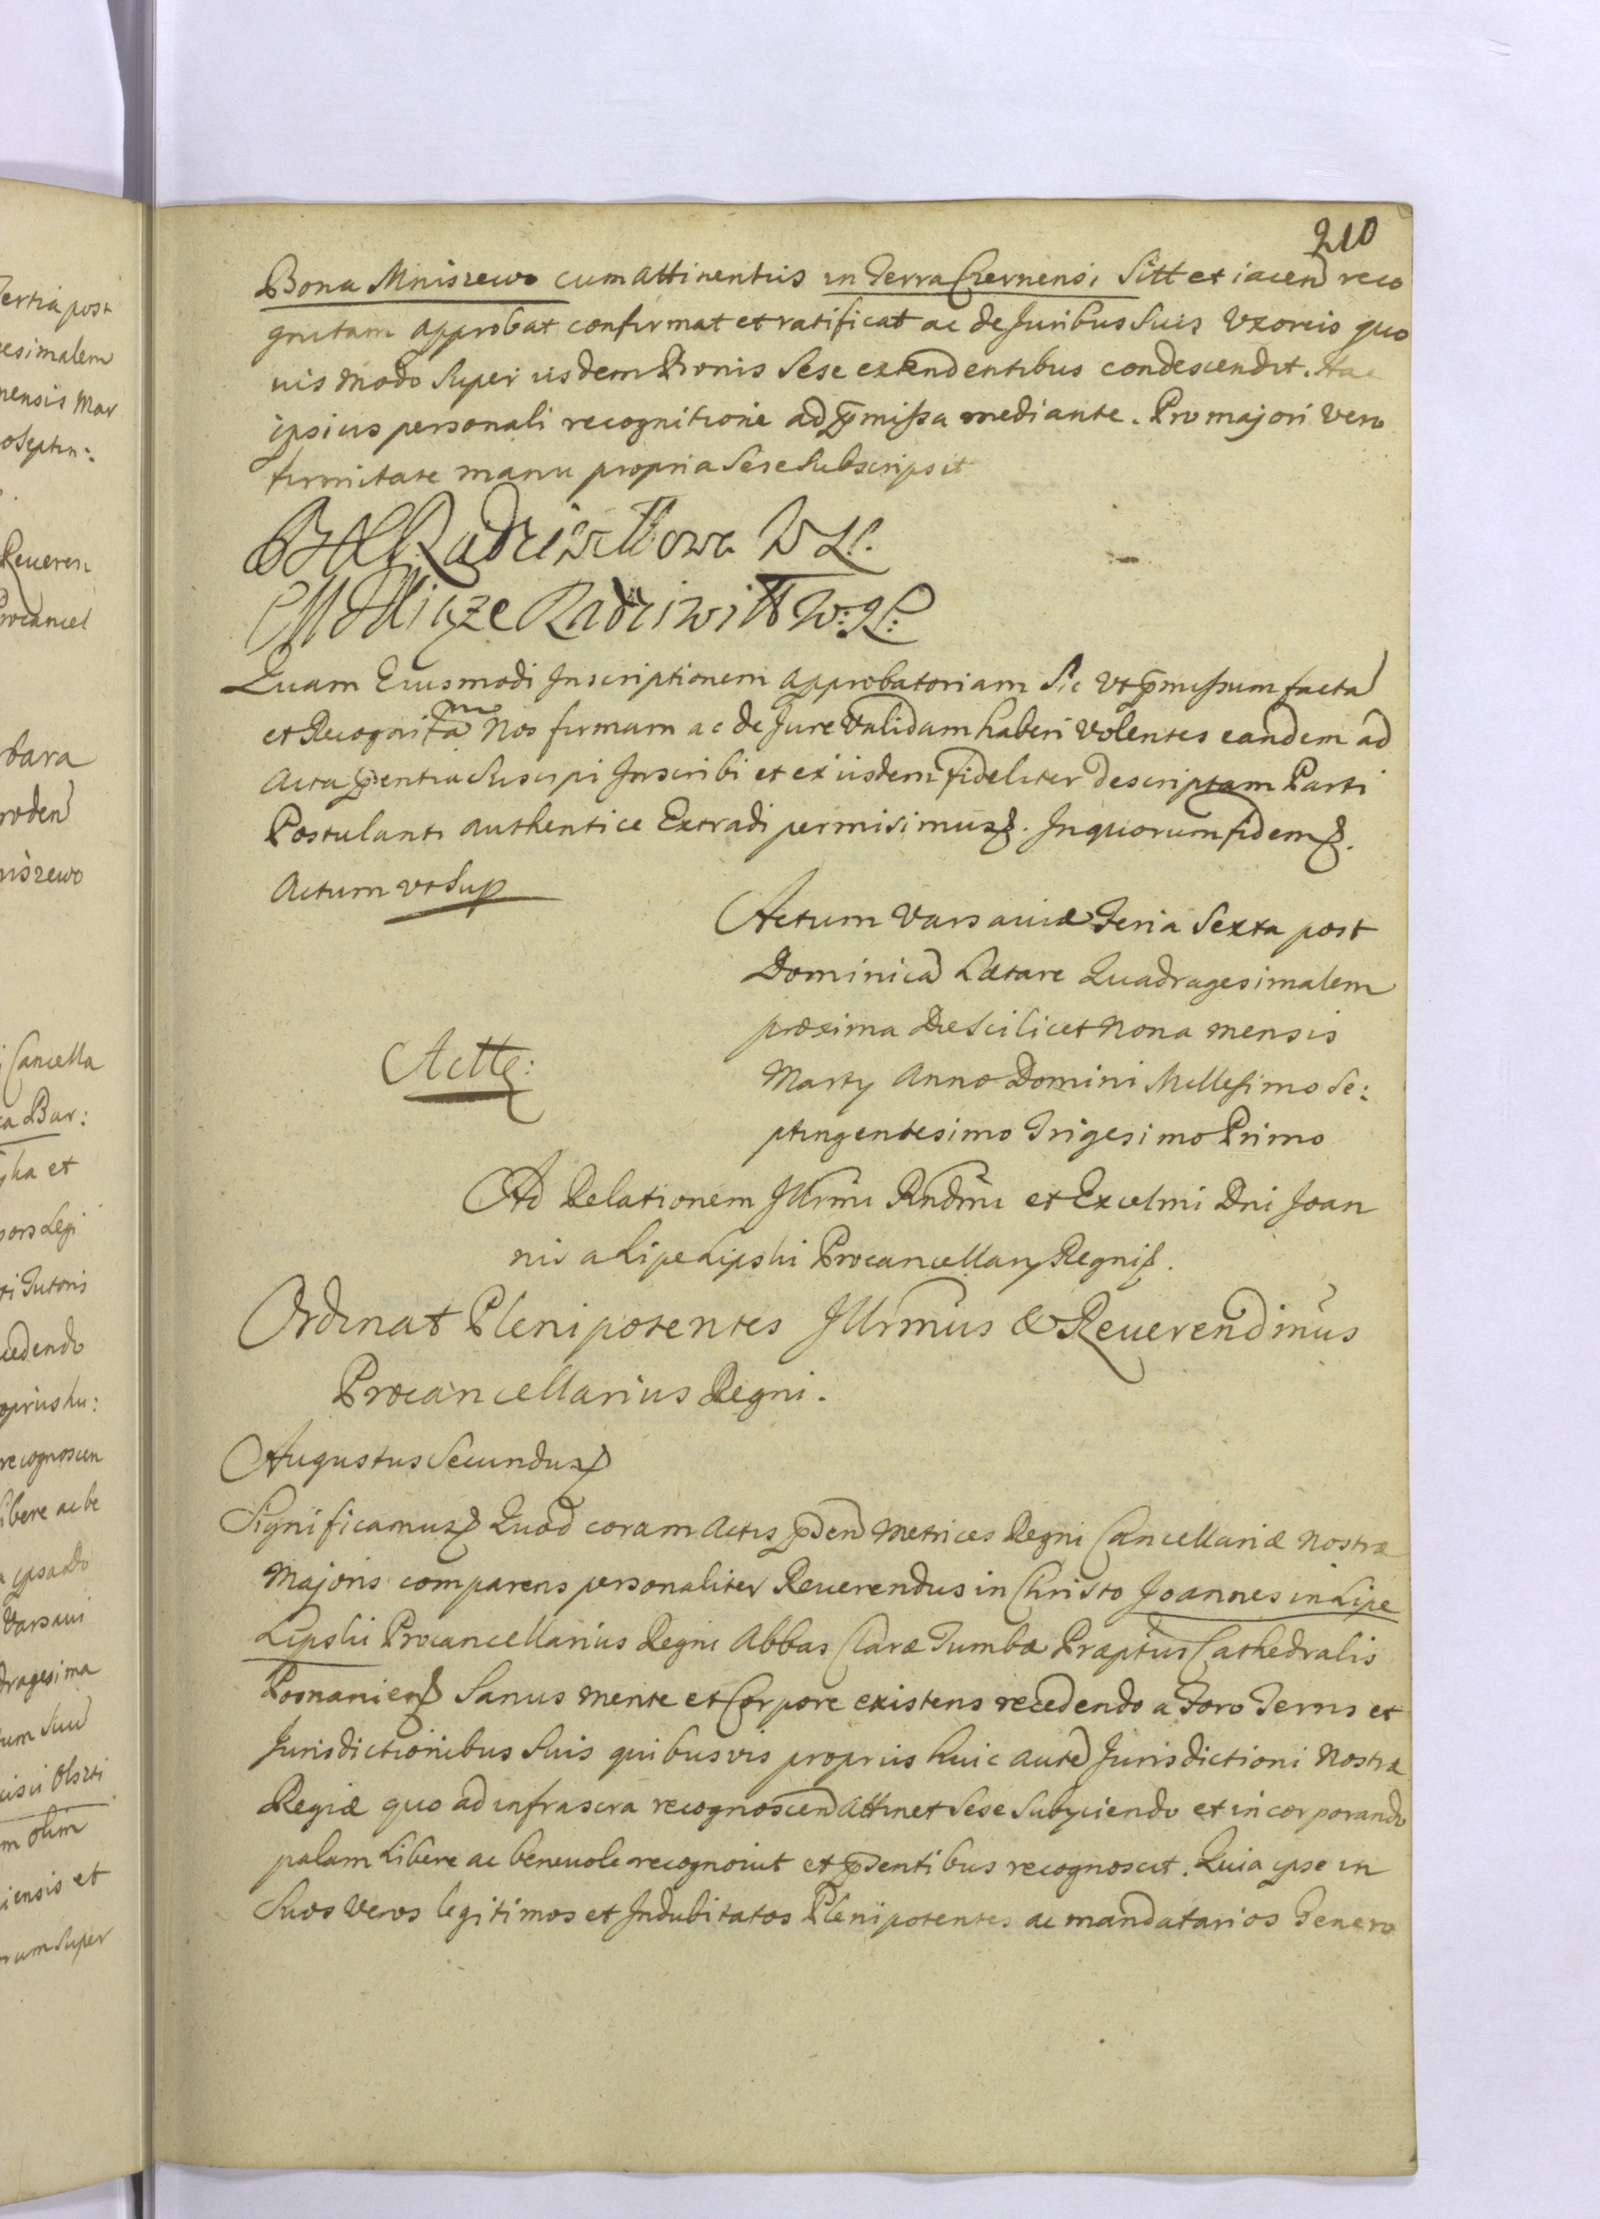 210
Bona Mniszewo cum attinentiis in Terra Czernensi Sitt et iacen reco
gnitam approbat confirmat et ratificat ac de Juribus Suis Vxoreis quo
uis modo Super iisdem Bonis Sese extendentibus condescendit. Hac
ipsius personali recognitione ad pmissa mediante. Pro majori vero
firmitate manu propria Sese Subscripsit
Radziwiłłowa W
Radziwiłł W:
Quam Eiusmodi Inscriptionem Approbatoriam Sic Vt pmissum facta
et Recognitam Nos firmam ac de Jure Validam haberi Volentes eandem ad
Acta pentia Suscipi Inscribi et ex iisdem fideliter descriptam Parti
Postulanti authentice Extradi permisimus. In quorum fidem.
Actum vt Sup
Actum Varsauiæ Feria Sexta post
Dominica Lætare Quadragesimalem
proxima Die Scilicet Nona mensis
Martij Anno Domini Millesimo Se:
ptingentesimo Trigesimo Primo
Ad Relationem Illrmi Rndmi et Excelmi Dni Joan
nis a Lipe Lipski Procancellarij Regni.
Ordinat Plenipotentes Illrmus & Reuerendmus
Procancellarius Regni.
Augustus Secundus
Significamus Quod coram Actis pden Metrices Regni Cancellariæ Nostræ
Majoris comparens personaliter Reuerendus in Christo Joannes in Lipe
Lipski Procancellarius Regni Abbas Claræ Tumbæ Præptus Cathedralis
Posnanien Sanus mente et Corpore existens recedendo a Foro Terris et
Jurisdictionibus Suis quibusvis propriis huic aute Jurisdictioni Nostræ
Regiæ quo ad infrascra recognoscen attinet Sese Subijciendo et incorporando
palam Libere ac beneuole recognouit et pdentibus recognoscit. Quia ipse in
Suos Veros legitimos et Indubitatos Plenipotentes ac mandatarios Genero